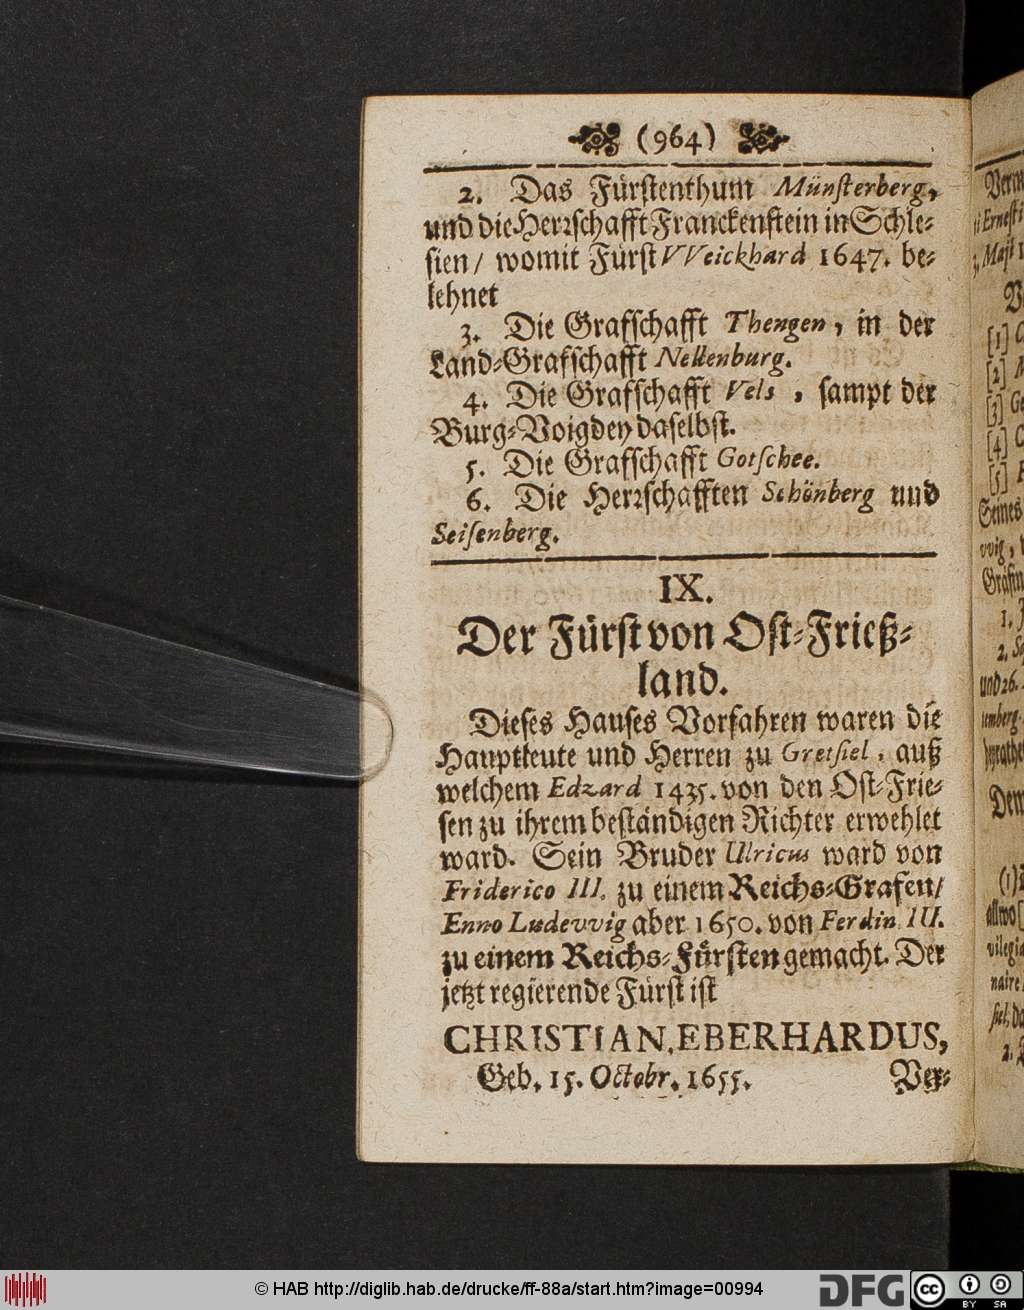 (964)
2. Das Fürstenthum Münsterberg,
und die Herrschafft Franckenstein in Schle-
sien / womit Fürst VVeickhard 1647. be-
lehnet
3. Die Grafschafft Thengen, in der
Land-Grafschafft Nellenburg.
4. Die Grafschafft Vels, sampt der
Burg-Voigdey daselbst.
5. Die Grafschafft Gotschee.
6. Die Herrschafften Schönberg und
Seisenberg.
IX.
Der Fürst von Ost-Frieß-
land.
Dieses Hauses Vorfahren waren die
Hauptleute und Herren zu Gretsiel, auß
welchem Edzard 1435. von den Ost-Frie-
sen zu ihrem beständigen Richter erwehlet
ward. Sein Bruder Ulricus ward von
Friderico III. zu einem Reichs-Grafen /
Enno Ludevvig aber 1650. von Ferdin. III.
zu einem Reichs-Fürsten gemacht. Der
jetzt regierende Fürst ist
CHRISTIAN. EBERHARDUS,
Geb. 15. Octobr. 1655.
Ver-
[1]
[2]
[3]
[4]
[5]
Seines
vvig,
1.
2.
und 26.
Dem
(1)
© HAB http://diglib.hab.de/drucke/ff-88a/start.htm?image=00994
DFG
cc
BY SA